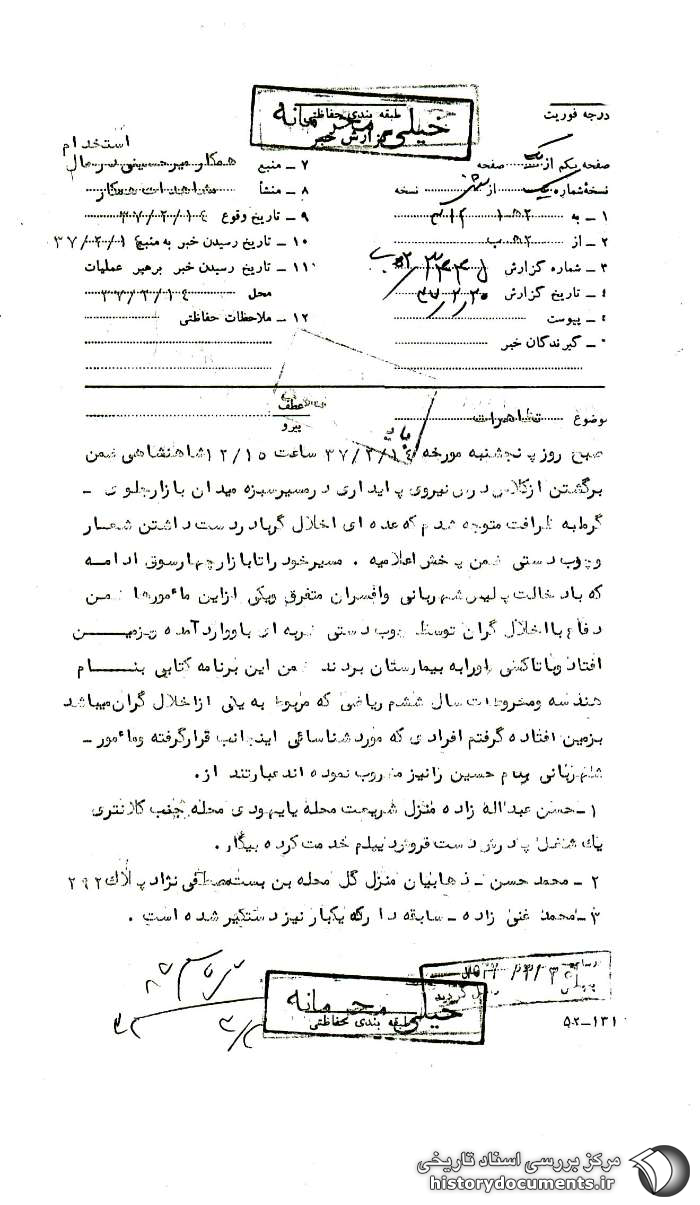 خیلی محرمانه
طبقه بندی حفاظتی
گزارش خبر
درجه فوریت
صفحه یکم از یک صفحه
نسخه شماره یک از شش نسخه
۱ـ به ۳۱۲
۲ـ از
۳ـ شماره گزارش
٤ـ تاریخ گزارش ۳۷/۲/۲۵
٤ـ پیوست
ـ گیرندگان خبر
استخدام
۷ـ منبع همکار میرحسینی در حال
۸ـ منشأ مشاهدات همکار
۹ـ تاریخ وقوع ۳۷/۲/۱٤
۱۰ـ تاریخ رسیدن خبر به منبع ۳۷/۲/۱٤
۱۱ـ تاریخ رسیدن خبر برهبر عملیات
محل ۳۷/۲/۱٤
۱۲ـ ملاحظات حفاظتی
موضوع تظاهرات
عطف
پیرو
صبح روز پنجشنبه مورخه ۳۷/۲/۱٤ ساعت ۱۲/۱۵ شاهنشاهی ضمن
برگشتن از کلاس درس نیروی پایداری در مسیر سبزه میدان بازار جلوی ـ
گرمابه ظرافت متوجه شدم که عده ای اخلال گر با در دست داشتن شعار
وچوب دستی ضمن پخش اعلامیه . مسیر خود را تا بازار چهارسوق ادامه
که با دخالت پلیس شهربانی وافسران متفرق ویکی ازاین مأمورها ضمن
دفاع بااخلال گران توسط چوب دستی ضربه ای باووارد آمده وبزمین
افتاد وباتاکسی اورابه بیمارستان بردند ضمن این برنامه کتابی بنام
هندسه ومخروطات سال ششم ریاضی که مربوط به یکی ازاخلال گران میباشد
بزمین افتاده گرفتم افرادی که مورد شناسائی اینجانب قرارگرفته ومأمور ـ
شهربانی بنام حسین رانیز مضروب نموده اند عبارتند از.
۱ـ حسن عبداله زاده منزل شریعت محله یا یهودی محله جنب کلانتری
یك شغل پدرش دست فروش دیپلم خدمت کرده بیکار.
۲ـ محمد حسن ـ ذهابیان منزل گل محله بن بست مصطفی نژاد پلاك ۲۹۲
۳ـ محمد غنی زاده ـ سابقه دار که یکبار نیز دستگیر شده است .
خیلی محرمانه
طبقه بندی حفاظتی
۵۲ـ۱۳۱
مرکز بررسی اسناد تاریخی
historydocuments.ir